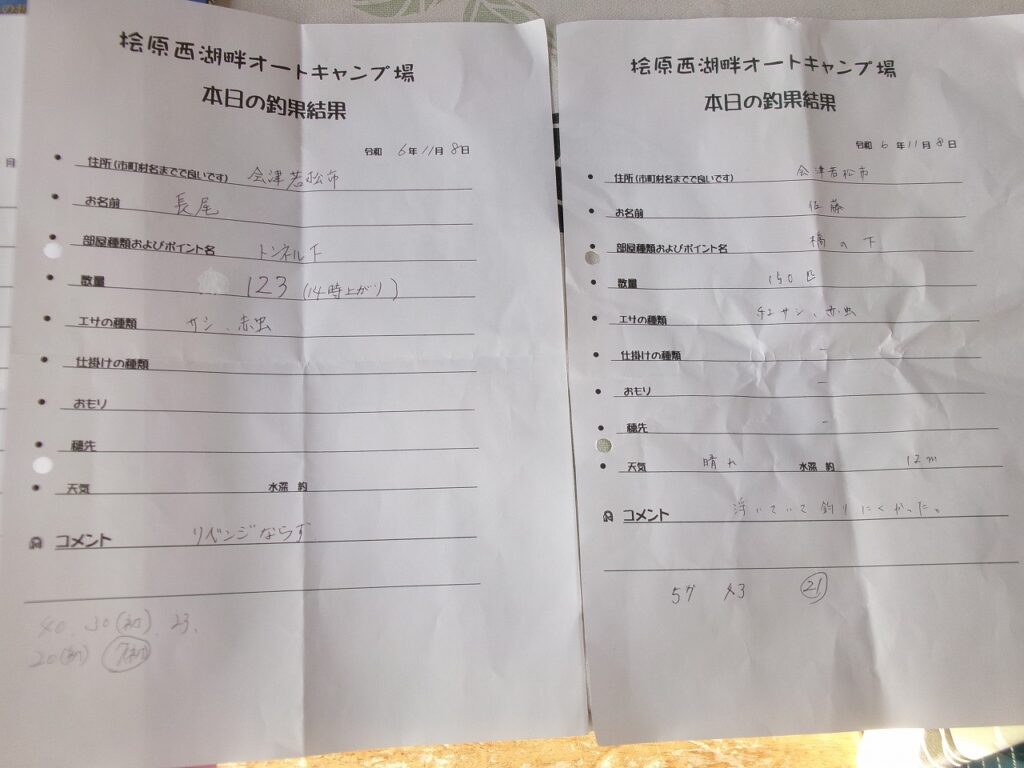 桧原西湖畔オートキャンプ場
本日の釣果結果
令和 6年11月8日
住所(市町村名までで良いです) 会津若松市
お名前 長尾
部屋種類およびポイント名 トンネル下
数量 123 (14時上がり)
エサの種類 サシ、赤虫
仕掛けの種類
おもり
穂先
天気 水深 約
コメント リベンジならず
40、30(初)、23、
20(初)
桧原西湖畔オートキャンプ場
本日の釣果結果
令和 6年11月8日
住所(市町村名までで良いです) 会津若松市
お名前 佐藤
部屋種類およびポイント名 橋の下
数量 150匹
エサの種類 チビサシ、赤虫
仕掛けの種類 -
おもり -
穂先 -
天気 晴れ 水深 約 12m
コメント 浮いていて釣りにくかった。
57 43 21
月